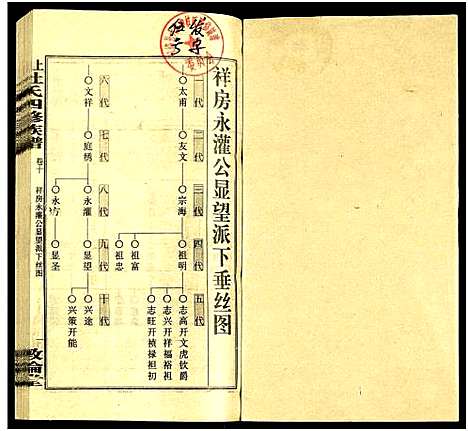 祥房永灌公显望派下垂丝图
一代
太甫
二代
友文
三代
宗海
四代
祖明
祖富
祖忠
五代
志高开文虎钦爵
志兴开祥福裕祖
志旺开祯禄担初
六代
文祥
七代
庭琇
八代
永灌
永方
九代
显望
显圣
十代
兴途
兴策开能
上杜氏四修族谱
卷十
祥房永灌公显望派下丝图